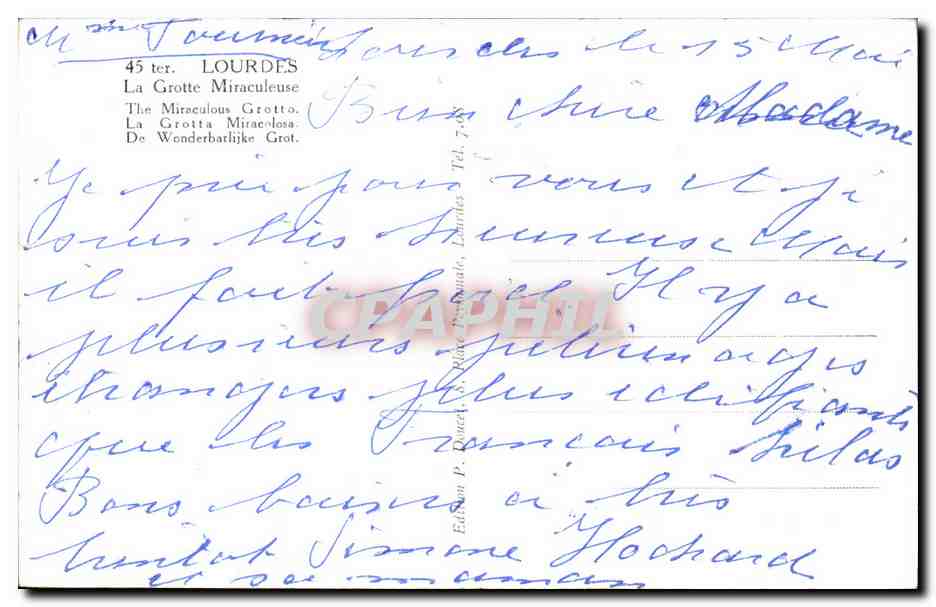 Mme Tournier Lourdes le 15 Mai
45 ter. LOURDES
La Grotte Miraculeuse
The Miraculous Grotto.
La Grotta Miracolosa.
De Wonderbarlijke Grot.
Bien chère Madame
Je prie pour vous et je
suis très heureuse Mais
il fait froid Il y a
plusieurs pélerinages
étrangers plus édifiants
que les Francais hélas
Bons baisers à très
bientot Simone Hochard
et sa maman
Edition P. Doucet, 8, Place Peyramale, Lourdes Tel. 7.08
CPAPHIL